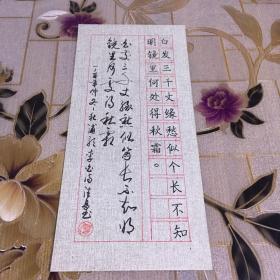 白发三千丈缘愁似个长不知
明镜里何处得秋霜。
白发三千丈缘愁似个长不知明
镜里何处得秋霜
秋浦歌李白诗